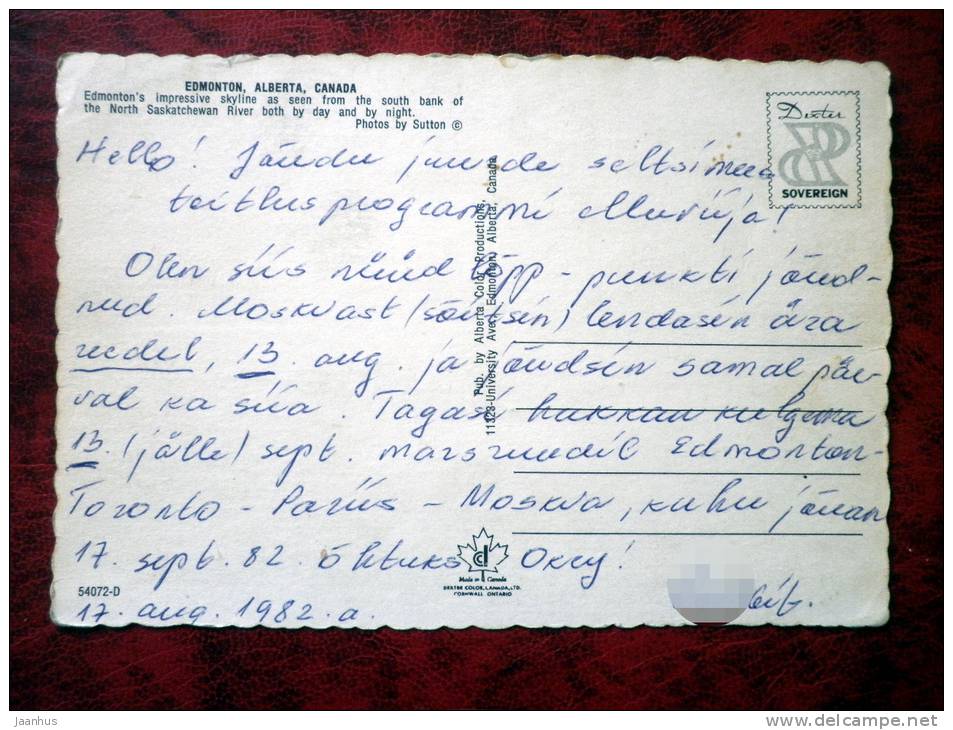 EDMONTON, ALBERTA, CANADA
Edmonton's impressive skyline as seen from the south bank of
the North Saskatchewan River both by day and by night.
Photos by Sutton ©
Dexter
SOVEREIGN
Hello! Jõudu juurde seltsimees
teitlusprogrammi
Olen siis nüüd lõpp-punkti jõud-
nud. Moskvast (sõitsin) lendasin ära
reedel, 13. aug. ja jõudsin samal päe-
val ka siia. Tagasi hakkan kulgema
13. (jälle) sept. marsruudil Edmonton-
Toronto - Pariis - Moskva, kuhu jõuan
17. sept. 82. õhtuks. Okey!
17. aug. 1982. a.
Pub. by Alberta Color Productions,
11323-University Ave., Edmonton, Alberta, Canada
CD
Made in Canada
DEXTER COLOR, CANADA, LTD.
CORNWALL ONTARIO
54072-D
jaanhus
www.delcampe.net